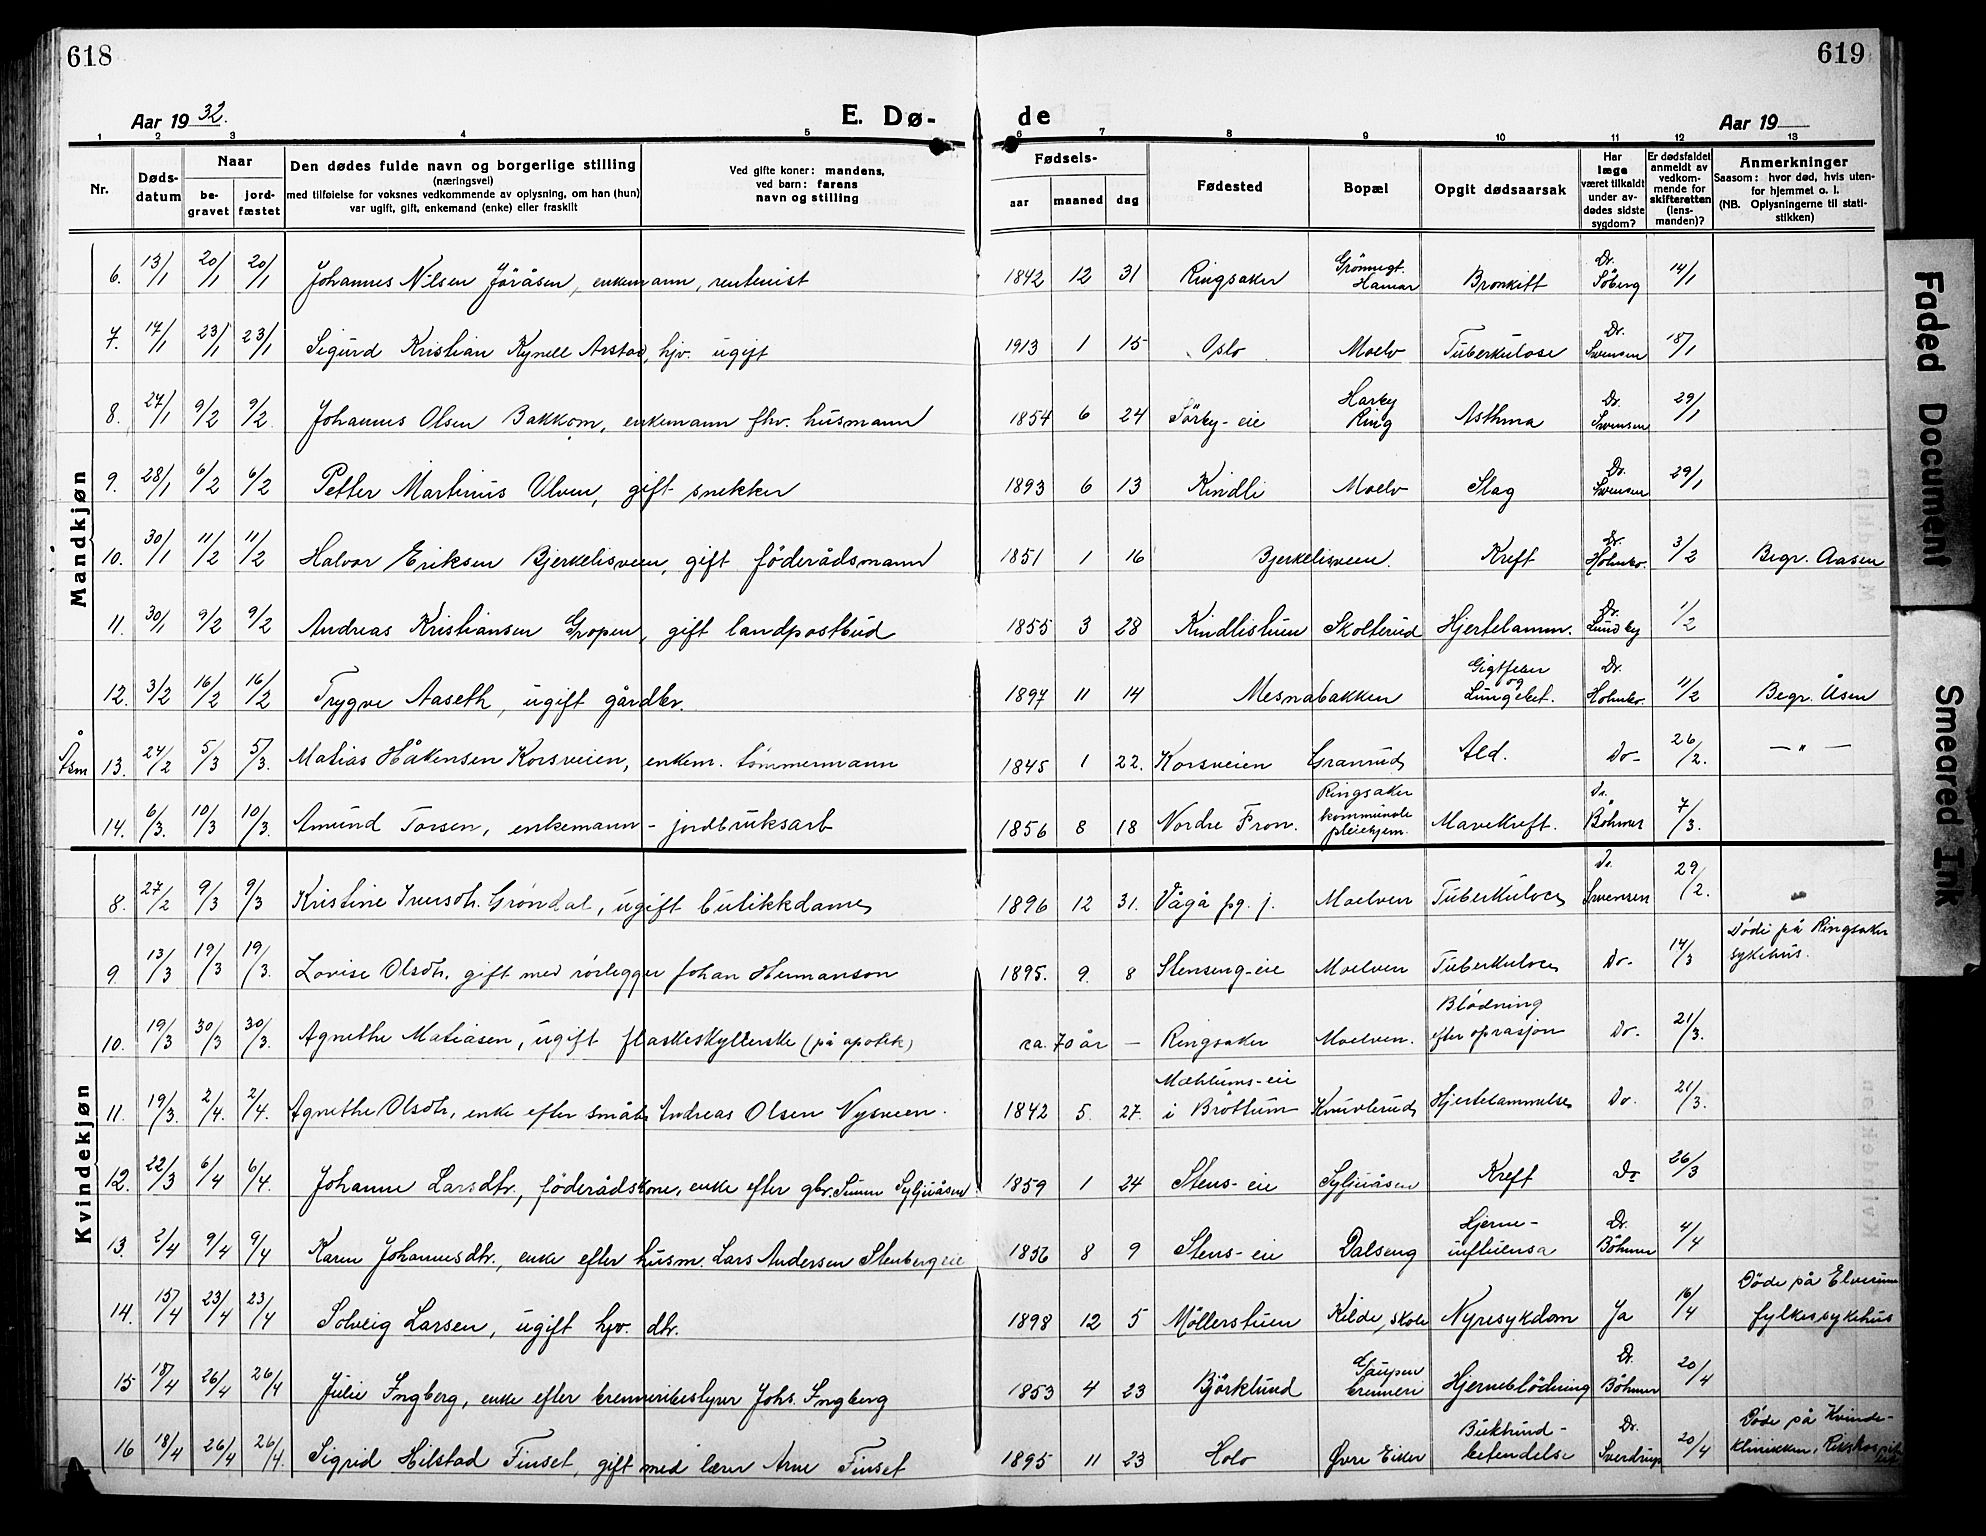 618
619
Aar 1932.
E. Dø-
de
Aar 19
1 2 3 4 5 6 7 8 9 10 11 12 13
Nr.
Døds-
datum
Naar
be-
gravet
jord-
fæstet
Den dødes fulde navn og borgerlige stilling
(næringsvei)
med tilføielse for voksnes vedkommende av oplysning, om han (hun)
var ugift, gift, enkemand (enke) eller fraskilt
Ved gifte koner: mandens,
ved barn: farens
navn og stilling
Fødsels-
aar
maaned
dag
Fødested
Bopæl
Opgit dødsaarsak
Har
læge
været tilkaldt
under av-
dødes sidste
sygdom?
Er dødsfaldet
anmeldt av
vedkom-
mende for
skifteretten
(lens-
manden)?
Anmerkninger
Saasom: hvor død, hvis uten-
for hjemmet o. l.
(NB. Oplysningerne til stati-
stikken)
Mandkjøn
6. 13/1 20/1 20/1 Johannes Nilsen Jøråsen, enkemann, rentenist 1842 12 31 Ringsaker Grönnegt. Hamar Bronkitt Dr. Söberg 14/1
7. 17/1 23/1 23/1 Sigurd Kristian Kynell Arstad, hjv. ugift 1913 1 15 Oslo Moelv Tuberkulose Dr. Svensen 18/1
8. 27/1 9/2 9/2 Johannes Olsen Bakkom, enkemann fhv. husmann 1854 6 24 Sörby-eie Harby Ring Asthma Dr. Svensen 29/1
9. 28/1 6/2 6/2 Petter Martinus Ulven, gift snekker 1893 6 13 Kindli Moelv Slag Dr. Svensen 29/1
10. 30/1 11/2 11/2 Halvor Eriksen Bjerkelisveen, gift föderådsmann 1851 1 16 Bjerkelisveen. Kreft Dr. Holmbo. 3/2 Begr. Aasen
11. 30/1 9/2 9/2 Andreas Kristiansen Gropen, gift landpostbud 1855 3 28 Kindlistuen Skolterud Hjertelamm. Dr. Lundby 1/2
12. 3/2 16/2 16/2 Trygve Aaseth, ugift gårdbr. 1897 11 14 Mesnabakken Gigtfeber og Lungebet. Dr. Holmbo. 11/2 Begr. Åsen
Åsm 13. 24/2 5/3 5/3. Matias Håkensen Korsveien, enkem. tömmermann 1845 1 22. Korsveien Granrud Ald. Do- 26/2. —„—
14. 6/3. 10/3 10/3. Amund Torsen, enkemann - jordbruksarb 1856 8 18 Nordre Fron. Ringsaker kommunale pleiehjem. Mavekreft. Dr. Böhmer 7/3.
Kvindekjøn
8. 27/2 9/3 9/3 Kristine Iversdtr. Grøndal, ugift butikkdame 1896 12 31. Vågå pg. j. Moelven Tuberkulose Dr. Svensen 29/2.
9 13/3 19/3 19/3. Lovise Olsdtr. gift med rørlegger Johan Hermanson 1895. 9. 8 Stenseng-eie Moelven Tuberkulose Do- 14/3 Døde på Ringsaker sykehus.
10. 19/3 30/3 30/3. Agnethe Matiasen, ugift flaskeskyllerske (på apotek) ca. 70 år — Ringsaker Moelven. Blödning efter oprasjon Do- 21/3.
11. 19/3. 2/4. 2/4. Agnethe Olsdtr, enke efter småbr. Andreas Olsen Nysveen. 1842 5. 27. Mæhlums-eie i Brøttum Knuvlerud Hjertelammelse Do. 21/3.
12. 22/3 6/4 6/4. Johanne Larsdtr., föderådskone, enke efter gbr. Simen Syljuåsen 1859 1 24 Stens-eie Syljuåsen Kreft Do 26/3
13. 2/4 9/4 9/4 Karen Johannesdtr., enke efter husm. Lars Andersen Stenbergeie 1856 8 9 Stens-eie Dalseng Hjerne-influensa Dr. Böhmer 4/4
14. 15/4 23/4 23/4 Solveig Larsen, ugift hjv. dtr. 1898 12 5 Möllerstuen Kilde, skole Nyresykdom Ja 16/4 Døde på Elverum fylkessykehus
15 18/4 26/4 26/4 Julie Ingberg, enke efter brenneribestyrer Johs. Ingberg 1853 4 23 Björklund Gaupen brenneri Hjerneblödning Dr. Böhmer 20/4
16 18/4 26/4 26/4. Sigrid Hilstad Finset, gift med lærer Arne Finset 1895 11 23 Holo Øvre Eiker Bukhindbetendelse Dr. Sverdrup 20/4 Døde på Kvinde-klinikken, Rikshospitalet
Faded Document
Smeared Ink